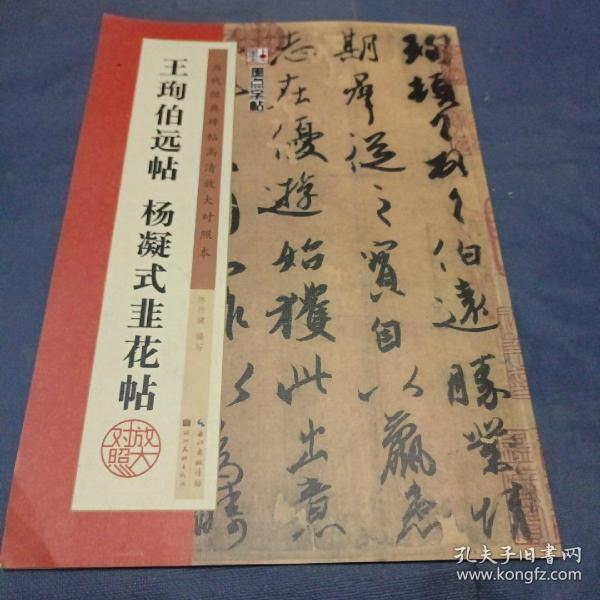 王珣伯远帖 杨凝式韭花帖
放大
对照
历代经典碑帖高清放大对照本
编写
墨点字帖
珣頓首頓首伯遠勝業情
期群從之寶自以羸患
志在優遊始獲此出意
孔夫子旧书网
www.kongfz.com